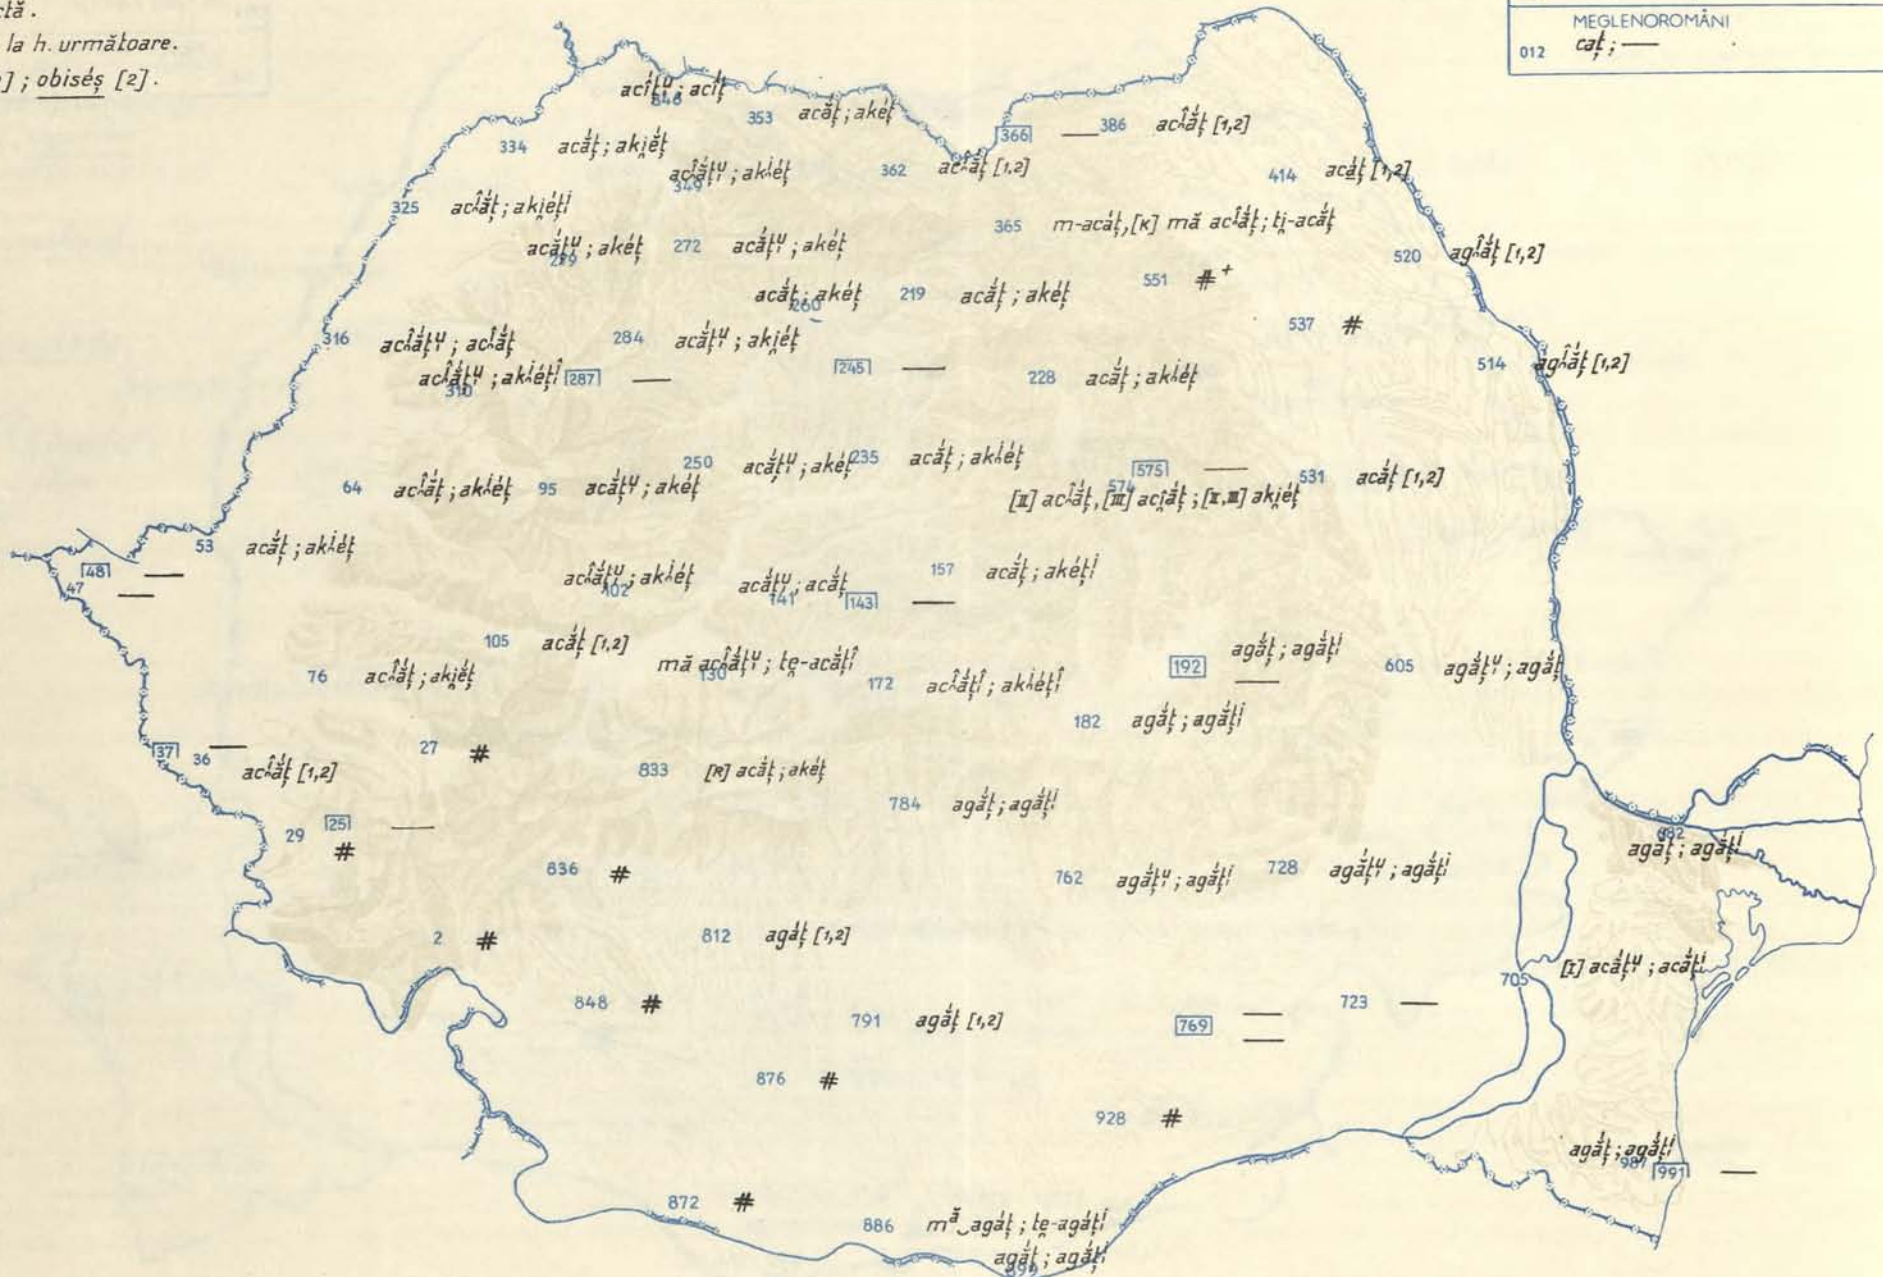 ctă.
la h. următoare.
] ; obisés̩ [2].
MEGLENOROMÂNI
012 caț ; —
848 acî́țᶸ ; acî́ț
353 acắț ; akéț
366 — 386 acắț [1,2]
334 acắț ; aki̯éț
349 acắțᶸ ; akéț
362 acắț [1,2]
414 acắț [1,2]
325 acắț ; aki̯éțⁱ
365 m-acáț, [K] mă acắț ; ti̯-acắț
279 acắțᶸ ; akéț
272 acắțᶸ ; akéț
520 agắț [1,2]
551 #⁺
260 acắț ; akéț
219 acắț ; akéț
537 #
316 acắțᶸ ; acắț
284 acắțᶸ ; aki̯éț
245 —
514 agắț [1,2]
310 acắțᶸ ; akéțî
287 —
228 acắț ; akéț
250 acắțᶸ ; akéț
235 acắț ; akéț
575 —
531 acắț [1,2]
64 acắț ; akéț
95 acắțᶸ ; akéț
574 [II] acắț, [III] acắț ; [II, III] aki̯éț
53 acắț ; akéț
48 —
47 —
102 acắțᶸ ; akéț
141 acắțᶸ ; acắț
143 —
157 acắț ; akéțⁱ
105 acắț [1,2]
130 mă acắțᶸ ; te̯-acắțî
192 —
agắț ; agắțⁱ
605 agắțᶸ ; agắț
76 acắț ; aki̯éț
172 acắțî ; akéțî
182 agắț ; agắțⁱ
37 —
36 acắț [1,2]
27 #
833 [R] acắț ; akéț
784 agắț ; agắțⁱ
25 —
29 #
682 agắț ; agắțⁱ
836 #
762 agắțᶸ ; agắțⁱ
728 agắțᶸ ; agắțⁱ
2 #
812 agáț [1,2]
705 [I] acắțᶸ ; acắțⁱ
848 #
791 agắț [1,2]
769 —
—
723 —
876 #
928 #
987 agắț ; agắțⁱ
991 —
872 #
886 mᵃ̆‿agáț ; te̯-agáțⁱ
899 agắț ; agắțⁱ